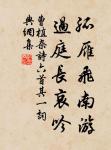 孤雁飛南游
過庭長哀吟
曹植雜詩六首其一詞
典網集